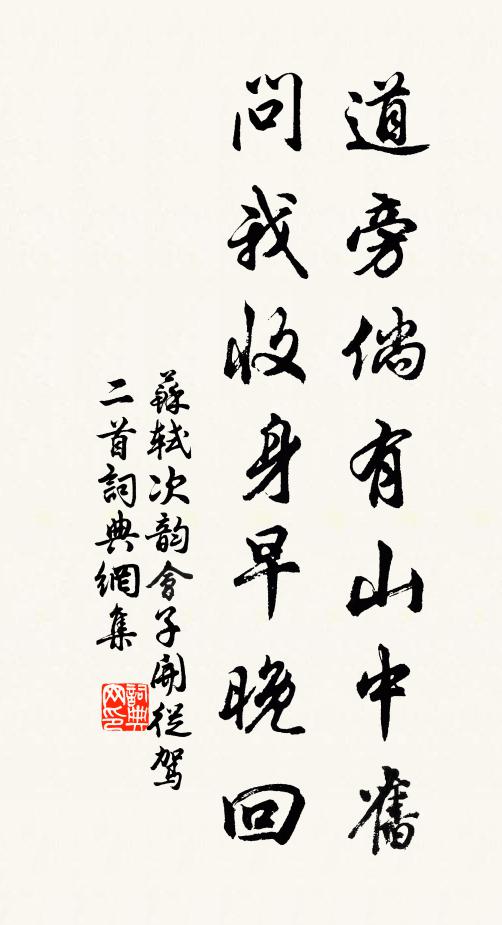 道旁倘有山中舊
問我收身早晚回
蘇軾次韵會子開從駕
二首詞典網集
詞典網印